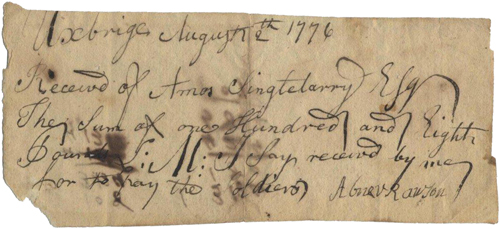 Uxbrige August 2th 1776
Receivd of Amos Singtelarry Esq
The Sum of one Hundred and Eight
Pounds L: M: I Say receivd by me
for to pay the soldiers Abner Rawson